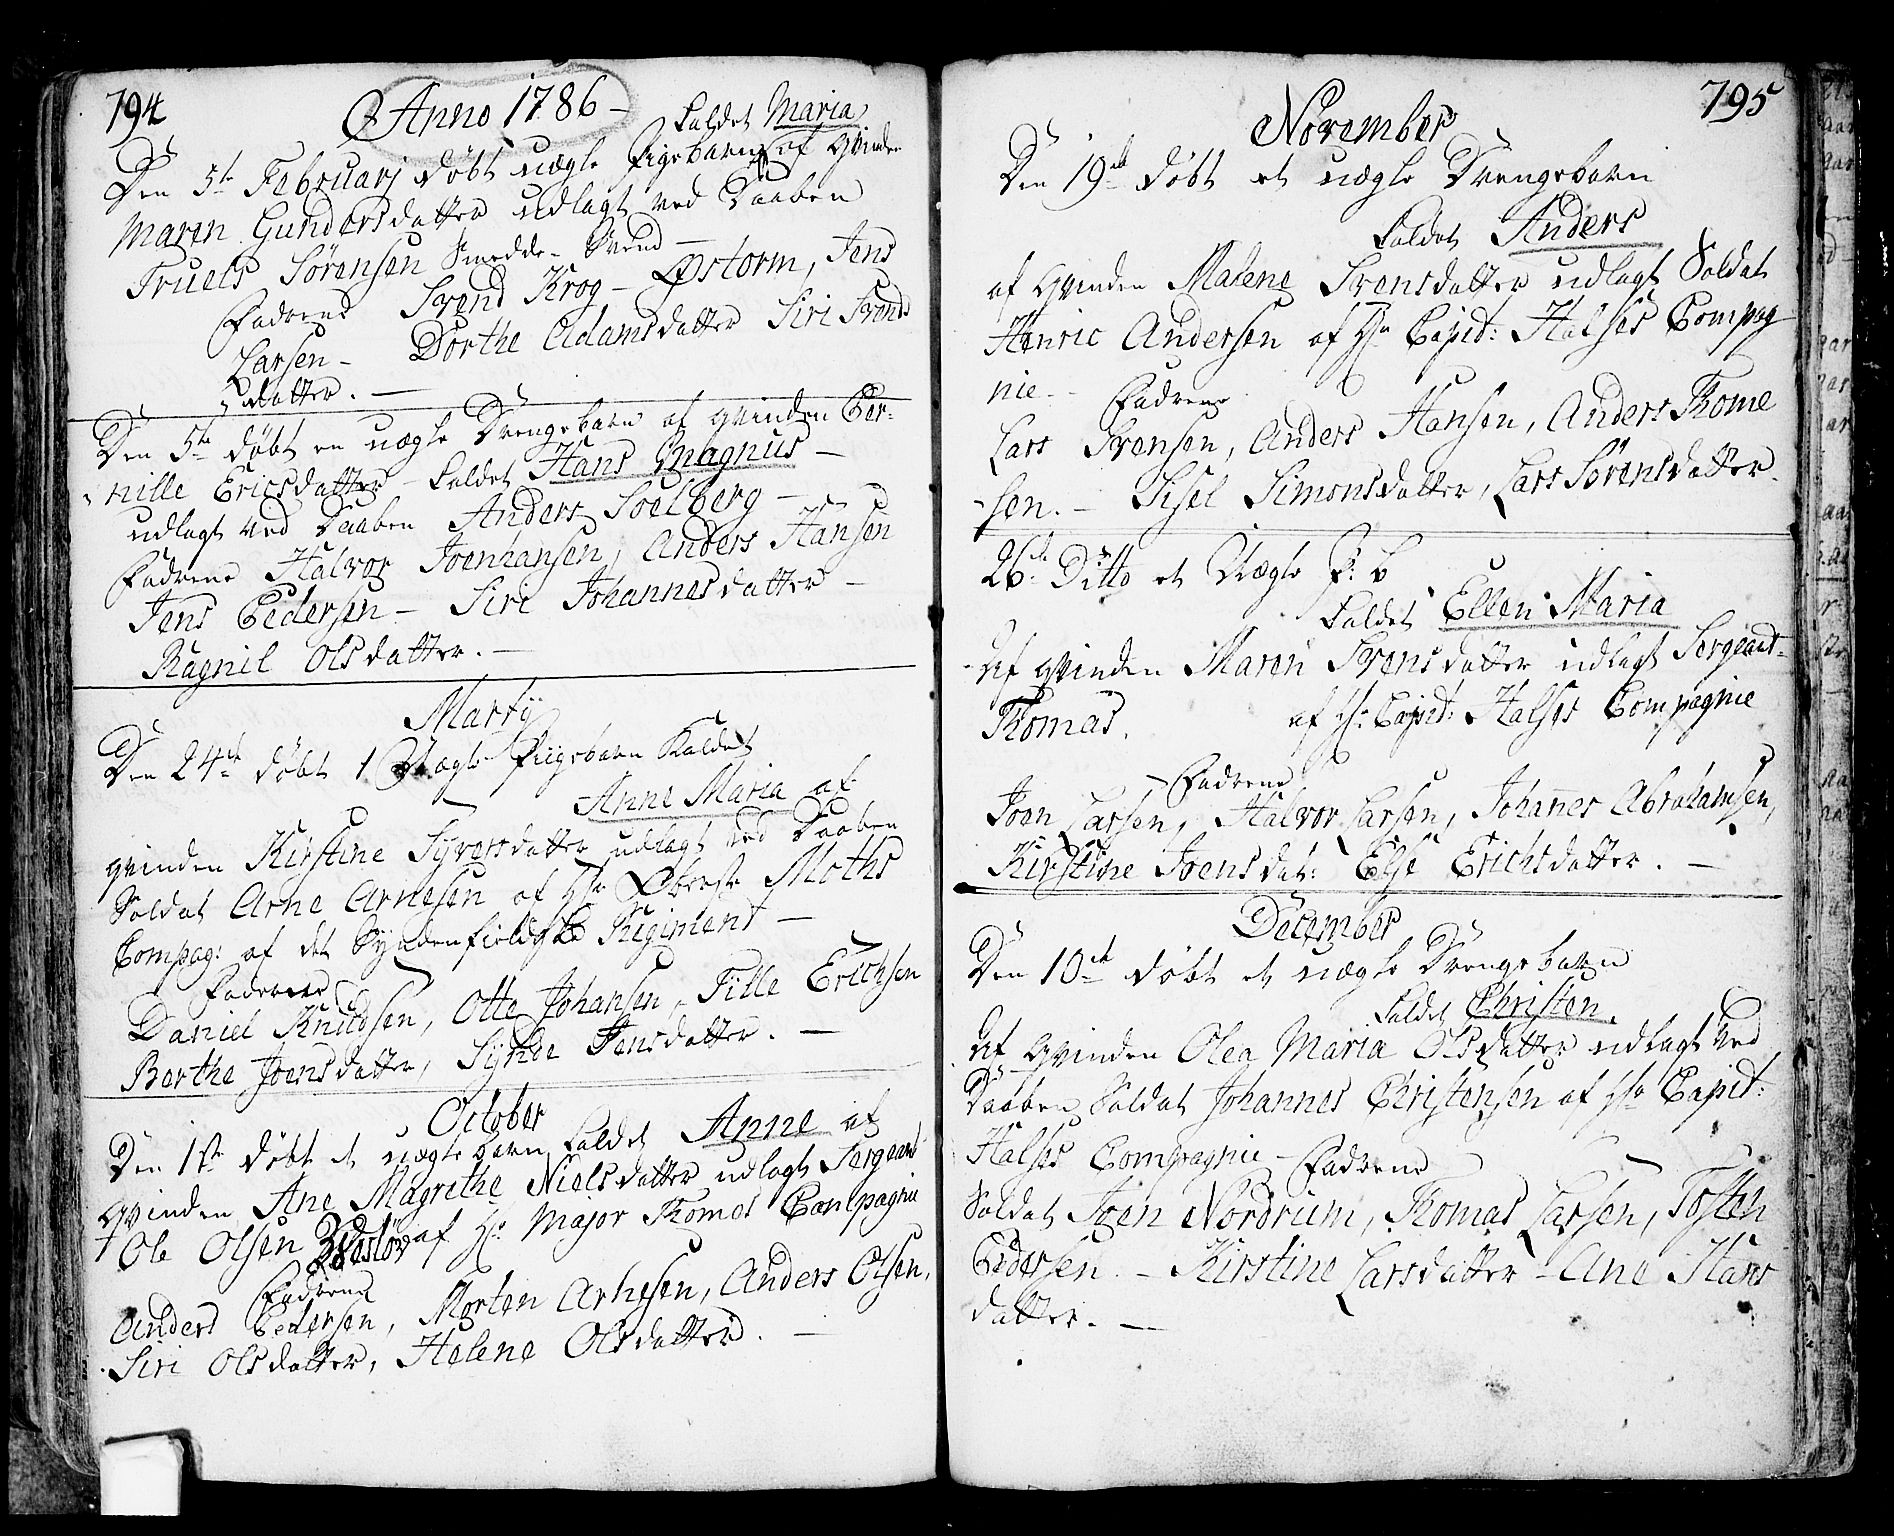 794
Anno 1786 –
kaldet Maria
Den 5te Februarj døbt uægte Pigebarn af qvinden
Maren Gundersdatter udlagt ved Daaben
Truels Sørensen Smedde-Svend –
Fadrene Svend Krog – Østorm, Jens
Larsen – Dorthe Adamsdatter Siri Svends
datter. –
Den 5te døbt en uægte Drengebarn af qvinden Per-
nille Ericsdatter – kaldet Hans Magnus –
udlagt ved Daaben Anders Soelberg –
Fadrene Halvor Joenhansen, Anders Hansen
Jens Pedersen – Siri Johannesdatter –
Ragnil Olsdatter. –
Martÿ
Den 24de døbt 1 Uægte Piigebarn Kaldet
Anne Maria af
qvinden Kirstine Syversdatter udlagt ved Daaben
Soldat Arne Arnesen af Hr Oberste Moths
Compag: af det Syndenfieldske Regiment –
Faderne
Daniel Knudsen, Otte Johansen, Tille Erichsen
Berthe Joensdatter, Synne Jensdatter. –
October
Den 1ste døbt et uægte barn kaldet Anne af
qvinden Ane Magrethe Nielsdatter udlagt Sergeant
Ole Olsen af Hr Major Thomes Companpagnie
Fadrene
Anders Pedersen, Morten Arnesen, Anders Olsen,
Siri Olsdatter, Helene Olsdatter. –
795
November
Den 19de døbt et uægte Drengebarn
kaldet Anders
af qvinden Malene Svensdatter udlagt Soldat
Henric Andersen af Hr Capit: Halses Compag
nie – Fadrene
Lars Svensen, Anders Hansen, Anders Thome
-sen. – Sisel Simonsdatter, Lars Sørensdatter.
26de Ditto et Uægte P: b
kaldet Ellen Maria
Af qvinden Maren Svensdatter udlagt Sergeant-
Thomas. af Hr: Capit: Halses Compagnie
Fadrene
Joen Larsen, Halvor Larsen, Johanes Abrahamsen,
Kirstine Joensdat: Else Erichsdatter. –
December
Den 10de døbt et uægte Drengebarn
kaldet Christen.
Af qvinden Olea Maria Olsdatter udlagt ved
Daaben Soldat Johannes Christensen af Hr Capit:
Halses Compagnie – Fadrene
Soldat Joen Nordrum, Thomas Larsen, Tosten
Pedersen – Kirstine Larsdatter – Ane Hans
datter. –